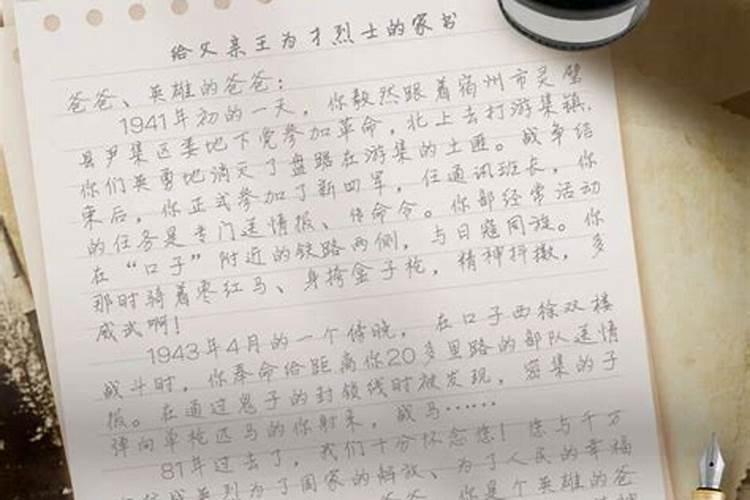 给父亲王为才烈士的家书
爸爸、英雄的爸爸：
1941年初的一天，你毅然跟着宿州市灵璧
县尹集区委地下党参加革命，北上去打游集镇，
你们英勇地消灭了盘踞在游集的土匪。战争结
束后，你正式参加了新四军，任通讯班长，你
的任务是专门送情报、传命令。你部经常活动
在“口子”附近的铁路两侧，与日寇周旋。你
那时骑着枣红马、身挎盒子枪，精神抖擞，多
威武啊！
1943年4月的一个傍晚，在口子西徐双楼
战斗时，你奉命给距离你20多里路的部队送情
报。在通过鬼子的封锁线时被发现，密集的子
弹向单枪匹马的你射来，战马……
81年过去了，我们十分怀念您！您与千万
烈为了国家的解放、为了人民的幸福
你是个英雄的爸